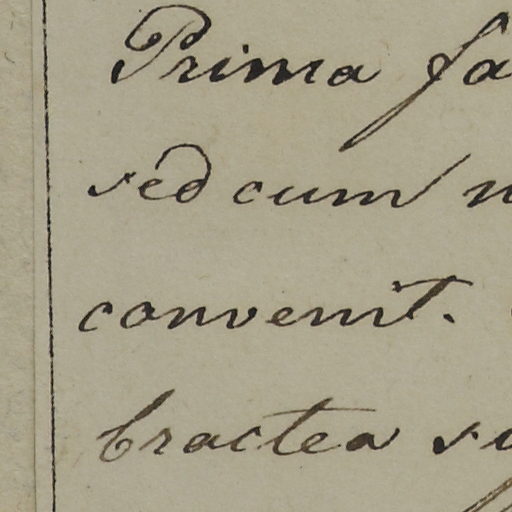 Prima fa
sed cum
convenit.
bractea su